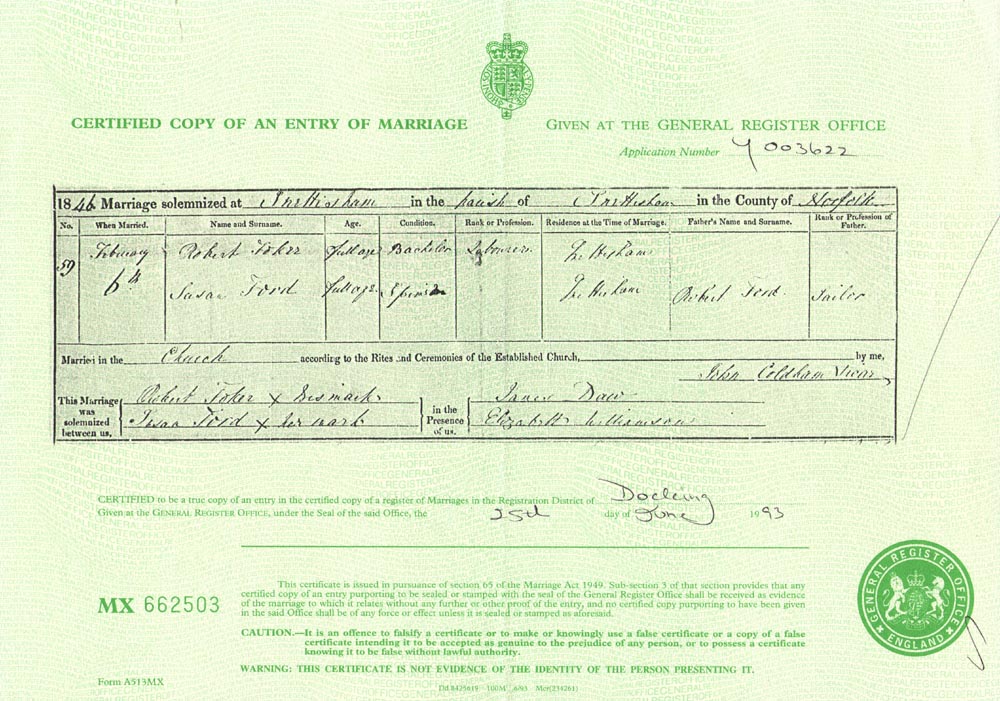 CERTIFIED COPY OF AN ENTRY OF MARRIAGE
GIVEN AT THE GENERAL REGISTER OFFICE
Application Number Y 003622
1846 Marriage solemnized at in the parish of in the County of Norfolk
No. When Married. Name and Surname. Age. Condition. Rank or Profession. Residence at the Time of Marriage. Father's Name and Surname. Rank or Profession of Father.
59 February 6th Robert full age Bachelor Labourer
Susan Ford full age Spinster Robert Ford Tailor
Married in the Church according to the Rites and Ceremonies of the Established Church, by me,
John Coldham Vicar
This Marriage was solemnized between us, Robert X his mark in the Presence of us, James Daw
Susan Ford X her mark Elizabeth Williamson
CERTIFIED to be a true copy of an entry in the certified copy of a register of Marriages in the Registration District of Docking
Given at the GENERAL REGISTER OFFICE, under the Seal of the said Office, the 25th day of June 1993
MX 662503
This certificate is issued in pursuance of section 65 of the Marriage Act 1949. Sub-section 3 of that section provides that any
certified copy of an entry purporting to be sealed or stamped with the seal of the General Register Office shall be received as evidence
of the marriage to which it relates without any further or other proof of the entry, and no certified copy purporting to have been given
in the said Office shall be of any force or effect unless it is sealed or stamped as aforesaid.
CAUTION.—It is an offence to falsify a certificate or to make or knowingly use a false certificate or a copy of a false
certificate intending it to be accepted as genuine to the prejudice of any person, or to possess a certificate
knowing it to be false without lawful authority.
WARNING: THIS CERTIFICATE IS NOT EVIDENCE OF THE IDENTITY OF THE PERSON PRESENTING IT.
Form A513MX
Dd 8425619 100M 6/93 Mcr(234261)
GENERAL REGISTER OFFICE
ENGLAND